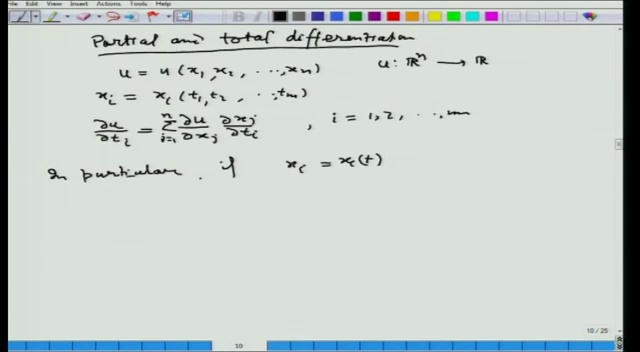 File Edit View Insert Actions Tools Help
Partial and total differentiation
u = u (x₁, x₂, ..., xₙ) u: ℝⁿ → ℝ
xᵢ = xᵢ (t₁, t₂, ..., tₘ)
∂u/∂tᵢ = Σⁿⱼ₌₁ ∂u/∂xⱼ ∂xⱼ/∂tᵢ , i = 1, 2, ..., m
In particular, if xᵢ = xᵢ(t)
10 / 25
10